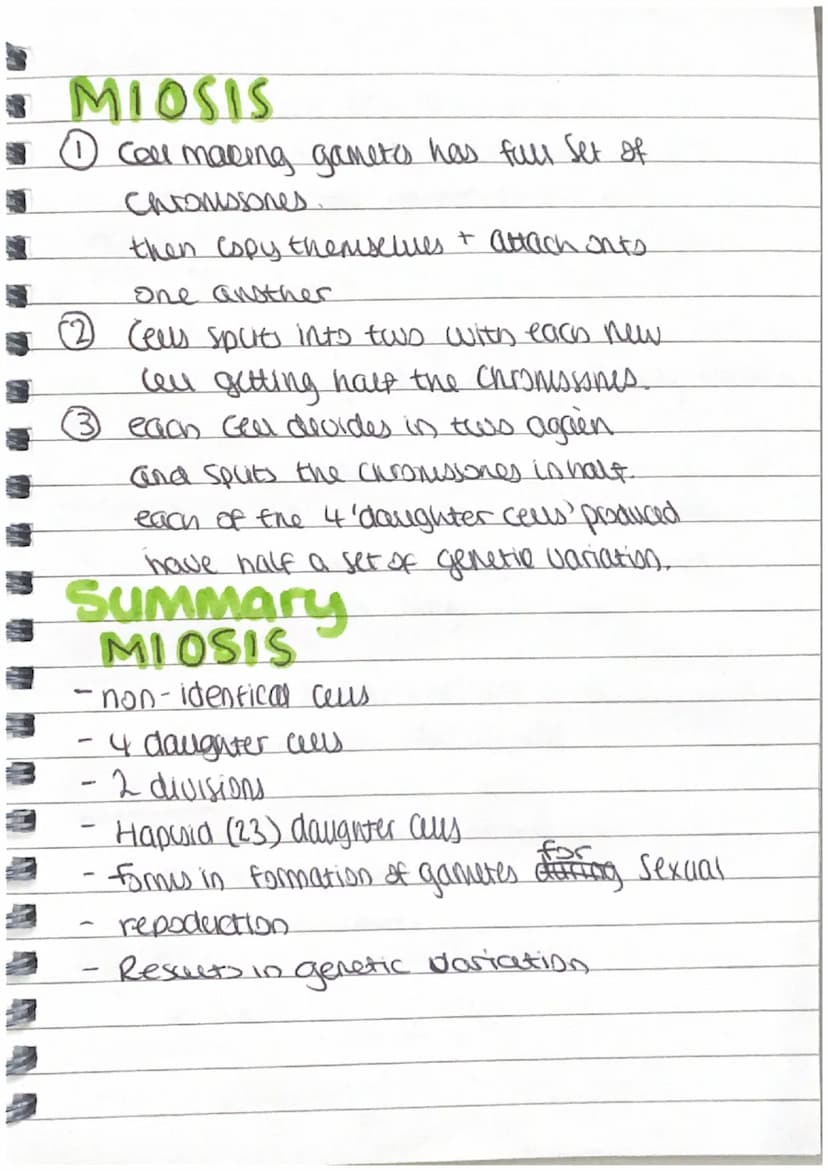 MIOSIS
① Cell making gametes has full set of
Chromosones.
then copy themselves + attach onto
one another
② Cells splits into two with each new
cell getting half the chromosones.
③ each cell devides in two again
and splits the chromosones in half.
each of the 4 'daughter cells' produced
have half a set of genetic variation.
Summary
MIOSIS
- non-identical cells
- 4 daughter cells
- 2 divisions
- Haploid (23) daughter cells
- forms in formation of gametes for sexual
- repoduction
- Results in genetic variation